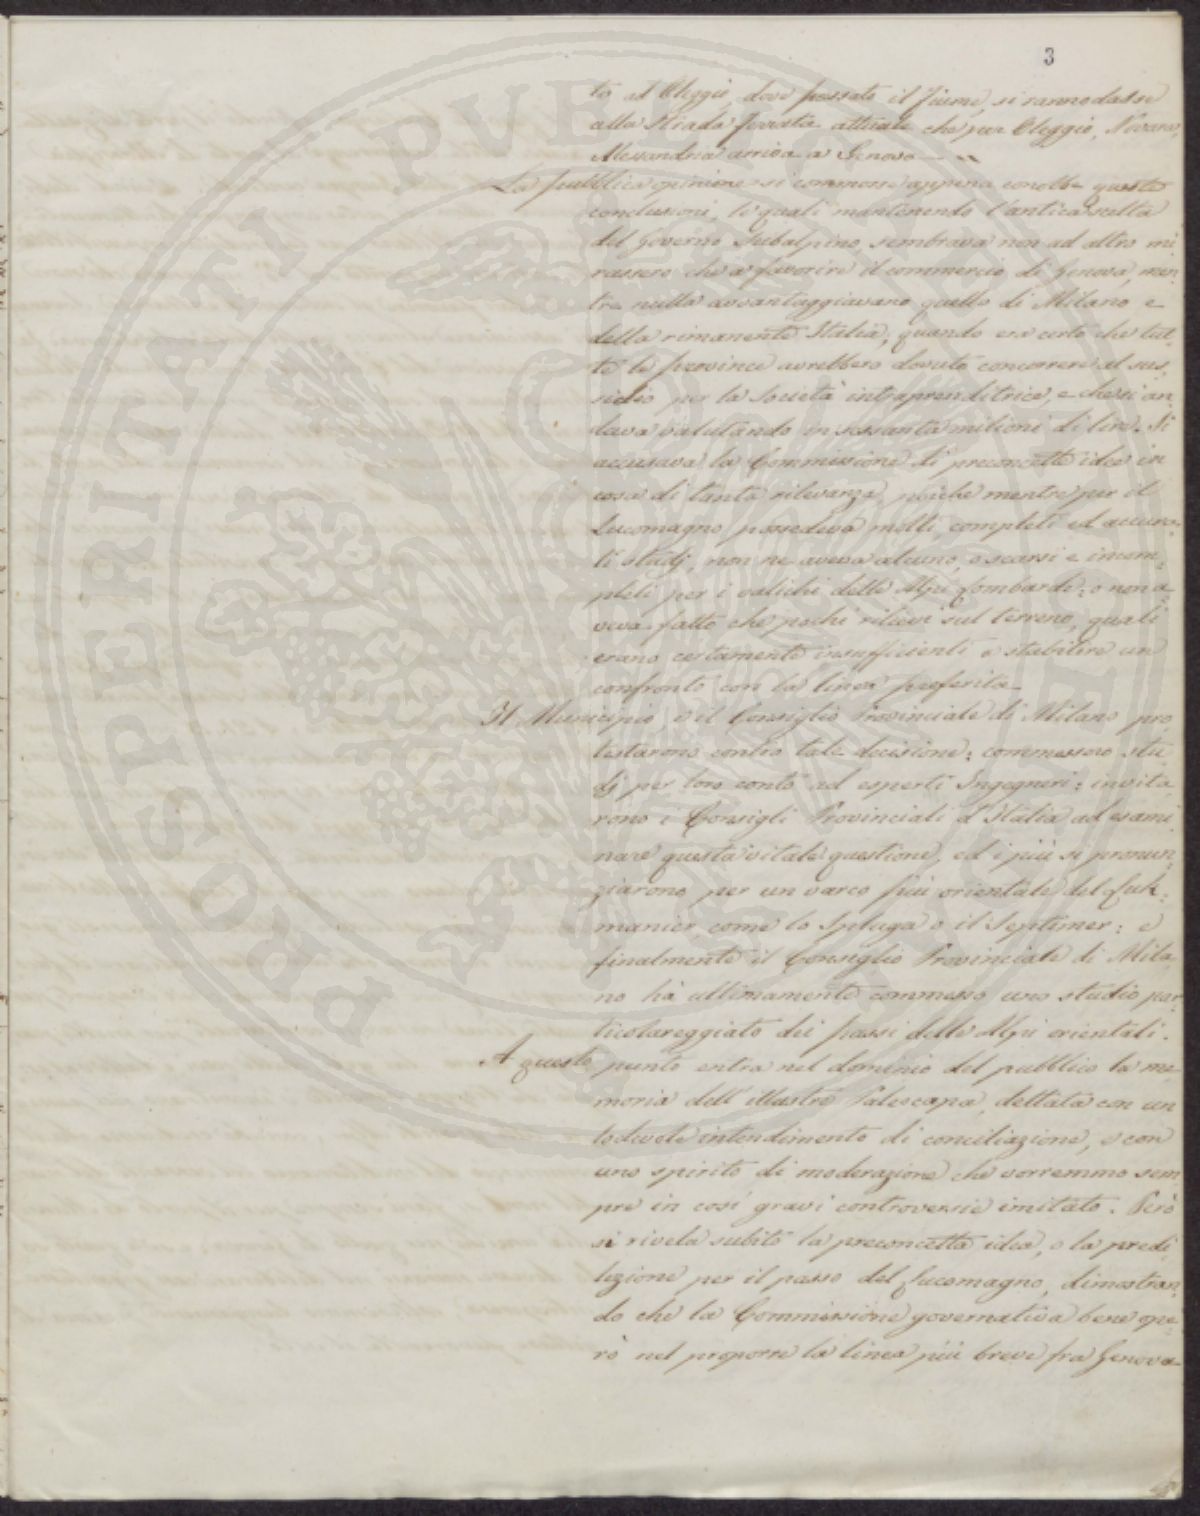 3
to ad Oleggio, dove passato il fiume, si rannodasse
alla Strada ferrata attuale che per Oleggio, Novara,
Alessandria arriva a Genova —"
La pubblica opinione si commosse appena conobbe queste
conclusioni, le quali mantenendo l'antica scelta
del Governo Subalpino, sembrava non ad altro mi
rassero che a favorire il commercio di Genova, men
tre nulla avvantaggiavano quello di Milano e
della rimanente Italia, quando era certo che tut=
te le province avrebbero dovuto concorrere al sus=
sidio per la Società intraprenditrice, e che si an
dava valutando in sessanta milioni di lire. Si
accusava la Commissione di preconcette idee in
cosa di tanta rilevanza, poiché mentre per il
Lucomagno possedeva molti, completi ed accura=
ti studj, non ne aveva alcuno, o scarsi e incom=
pleti per i valichi delle Alpi Lombarde; o non a=
veva fatto che pochi rilievi sul terreno, quali
erano certamente insufficienti a stabilire un
confronto con la linea preferita.
Il Municipio, e il Consiglio Provinciale di Milano pro
testarono contro tale decisione; commessero stu
dj per loro conto ad esperti Ingegneri; invita
rono i Consigli Provinciali d'Italia ad esami
nare questa vitale questione, ed i più si pronun=
ziarono per un varco più orientale del Luk=
manier come lo Spluga o il Septimer; e
finalmente il Consiglio Provinciale di Mila
no hà ultimamente commesso uno studio par
ticolareggiato dei passi delle Alpi orientali.
A questo punto entra nel dominio del pubblico la me
moria dell'illustre Paleocapa, dettata con un
lodevole intendimento di conciliazione, e con
uno spirito di moderazione che vorremmo sem
pre in così gravi controversie imitato. Però
si rivela subito la preconcetta idea, e la predi
lezione per il passo del Lucomagno, dimostran=
do che la Commissione governativa bene ope=
rò nel proporre la linea più breve fra Genova
PROSPERITATI PVBLICAE